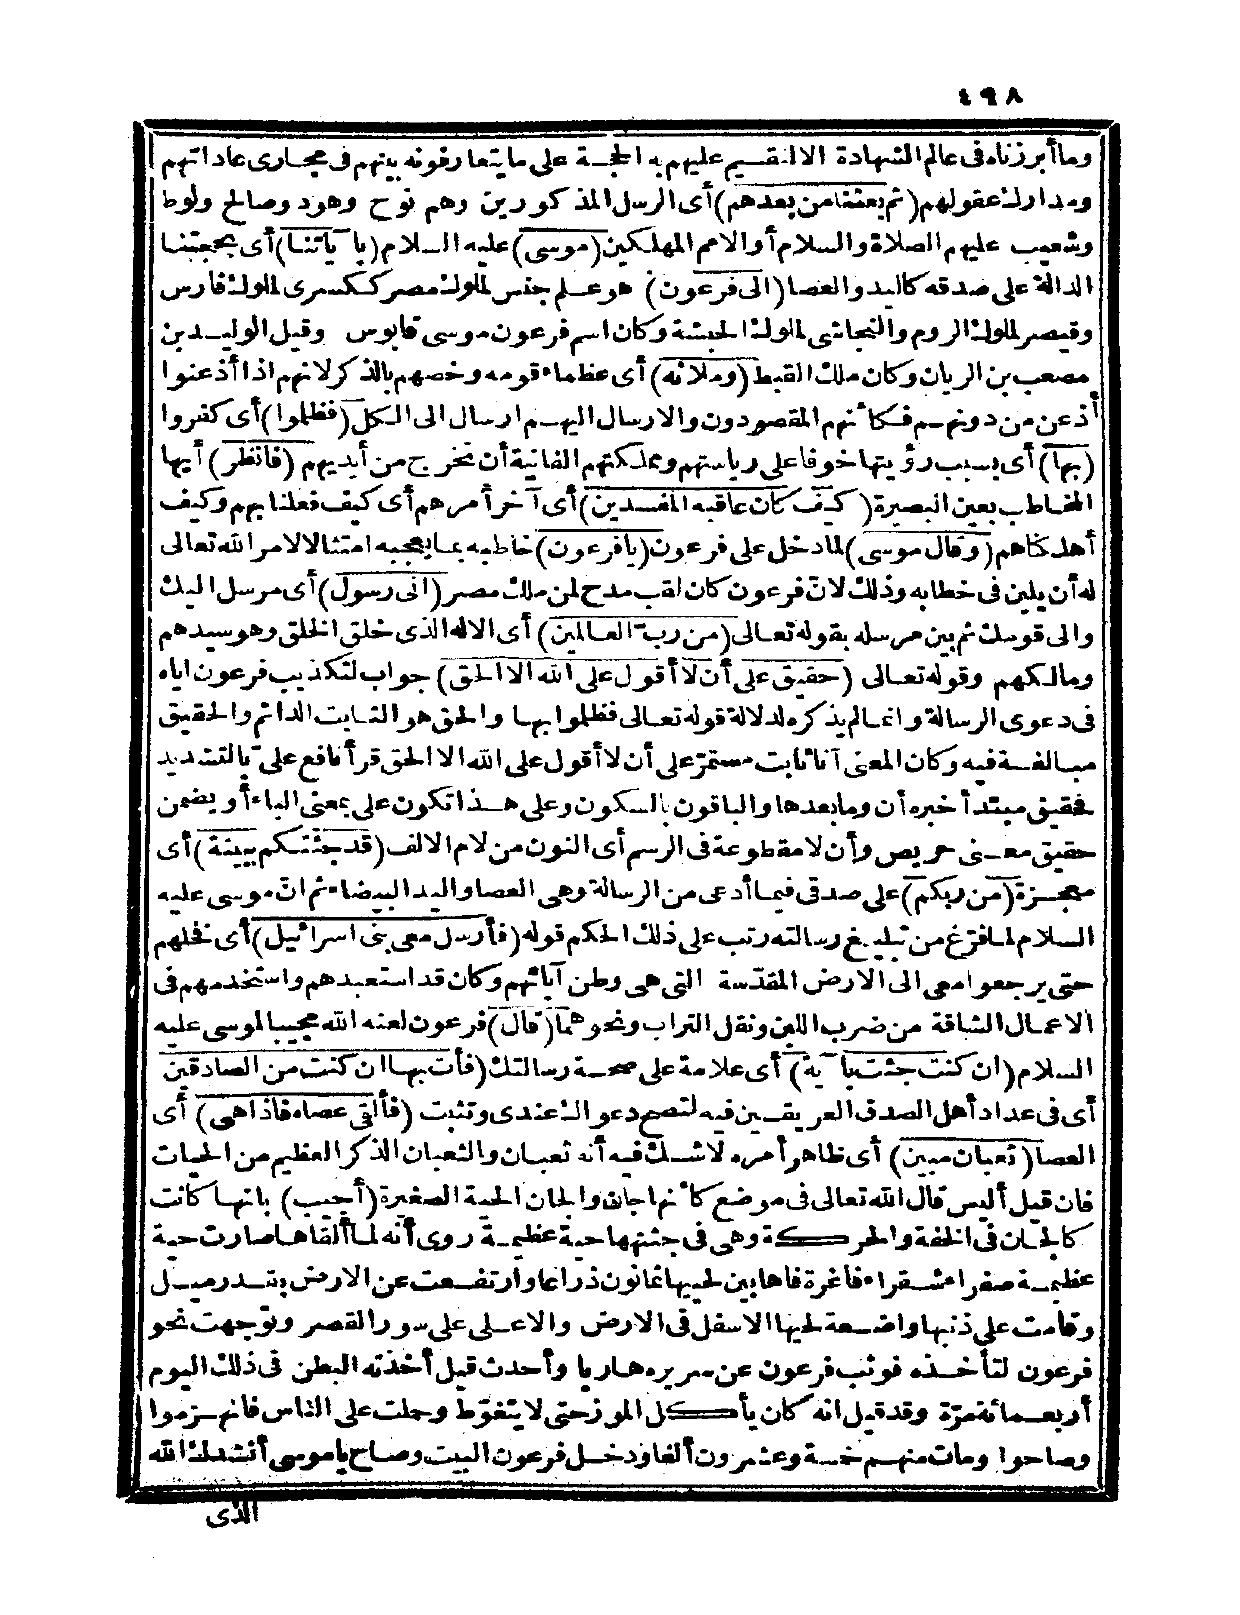 ٤٩٨
وما أبرزناه فى عالم الشهادة الا لنقيم عليهم به الحجة على ما يتعارفونه بينهم فى مجارى عاداتهم
ومدارك عقولهم (ثم بعثنا من بعدهم) أى الرسل المذكورين وهم نوح وهود وصالح ولوط
وشعيب عليهم الصلاة والسلام أو الامم المهلكين (موسى) عليه السلام (بآياتنا) أى بحجتنا
الدالة على صدقه كاليد والعصا (الى فرعون) هو علم جنس لملوك مصر ككسرى لملوك فارس
وقيصر لملوك الروم والنجاشى لملوك الحبشة وكان اسم فرعون موسى قابوس وقيل الوليد بن
مصعب بن الريان وكان ملك القبط (وملائه) أى عظماء قومه وخصهم بالذكر لانهم اذا أذعنوا
أذعن من دونهم فكأنهم المقصودون والارسال اليهم ارسال الى الكل (فظلموا) أى كفروا
(بها) أى بسبب رؤيتها خوفا على رياستهم ومملكتهم الفانية أن تخرج من أيديهم (فانظر) أيها
المخاطب بعين البصيرة (كيف كان عاقبة المفسدين) أى آخر أمرهم أى كيف فعلنا بهم وكيف
أهلكناهم (وقال موسى) لما دخل على فرعون (يا فرعون) خاطبه بما يعجبه امتثالا لامر الله تعالى
له أن يلين فى خطابه وذلك لانّ فرعون كان لقب مدح لمن ملك مصر (انى رسول) أى مرسل اليك
والى قومك ثم بين مرسله بقوله تعالى (من رب العالمين) أى الاله الذى خلق الخلق وهو سيدهم
ومالكهم وقوله تعالى (حقيق على أن لا أقول على الله الا الحق) جواب لتكذيب فرعون اياه
فى دعوى الرسالة وانما لم يذكره لدلالة قوله تعالى فظلموا بها والحق هو الثابت الدائم والحقيق
مبالغة فيه وكان المعنى أنا ثابت مستمرّ على أن لا أقول على الله الا الحق قرأ نافع علىّ بالتشديد
فحقيق مبتدأ خبره أن وما بعدها والباقون بالسكون وعلى هذا تكون على بمعنى الباء أو يضمن
حقيق معنى حريص وأن لا مقطوعة فى الرسم أى النون من لام الالف (قد جئتكم ببينة) أى
معجزة (من ربكم) على صدقى فيما أدعى من الرسالة وهى العصا واليد البيضاء ثم انّ موسى عليه
السلام لما فرغ من تبليغ رسالته رتب على ذلك الحكم قوله (فأرسل معى بنى اسرائيل) أى فخلهم
حتى يرجعوا معى الى الارض المقدّسة التى هى وطن آبائهم وكان قد استعبدهم واستخدمهم فى
الاعمال الشاقة من ضرب اللبن ونقل التراب ونحوهما (قال) فرعون لعنه الله مجيبا لموسى عليه
السلام (ان كنت جئت بآية) أى علامة على صحة رسالتك (فأت بها ان كنت من الصادقين
أى فى عداد أهل الصدق العريقين فيه لتصح دعواك عندى وتثبت (فألقى عصاه فاذا هى) أى
العصا (ثعبان مبين) أى ظاهر أمره لا شك فيه أنه ثعبان والثعبان الذكر العظيم من الحيات
فان قيل أليس قال الله تعالى فى موضع كأنها جانّ والجان الحية الصغيرة (أجيب) بانها كانت
كالجان فى الخفة والحركة وهى فى جثتها حية عظيمة روى أنه لما ألقاها صارت حية
عظيمة صفراء شقراء فاغرة فاها بين لحييها ثمانون ذراعا وارتفعت عن الارض بقدر ميل
وقامت على ذنبها واضعة لحيها الاسفل فى الارض والاعلى على سور القصر وتوجهت نحو
فرعون لتأخذه فوثب فرعون عن سريره هاربا وأحدث قيل أخذته البطن فى ذلك اليوم
أربعمائة مرّة وقد قيل انه كان يأكل الموز حتى لا يتغوّط وحملت على الناس فانهزموا
وصاحوا ومات منهم خمسة وعشرون ألفا ودخل فرعون البيت وصاح يا موسى أنشدك الله
الذى